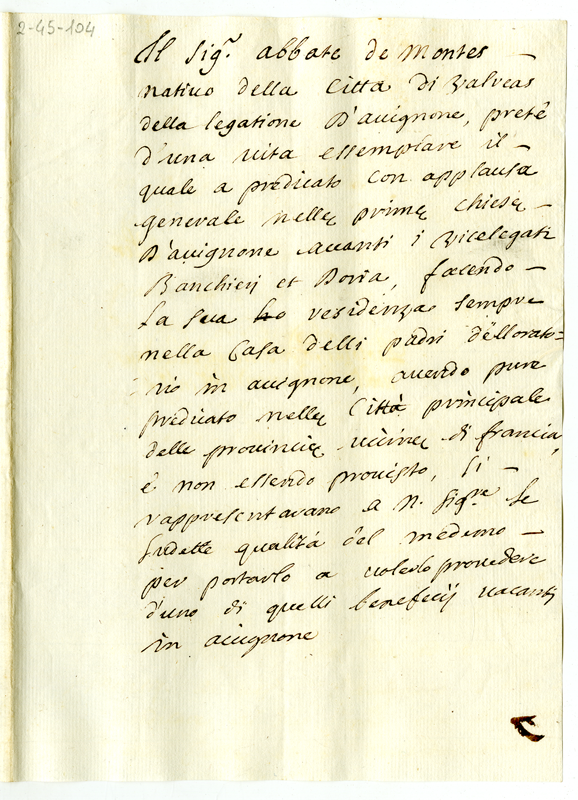 2-45-104
Il Sig.r abbate de Montes
nativo della Città di Valreas
della legatione D'avignone, prete
d'una vita essemplare il
quale a predicato con applausa
generale nelle prime chiese
D'avignone avanti i Vicelegati
Banchieij et Doria, facendo
la sua residenza sempre
nella Casa delli padri dell'orato=
rio in avignone, avendo pure
predicato nelle Città principale
delle provincie vicine di francia,
e non essendo provisto, si
rappresentavano a N. Sig.re le
sudette qualità del medemo
per portarlo a volerlo provedere
d'uno di quelli beneficij vacanti
in avignone